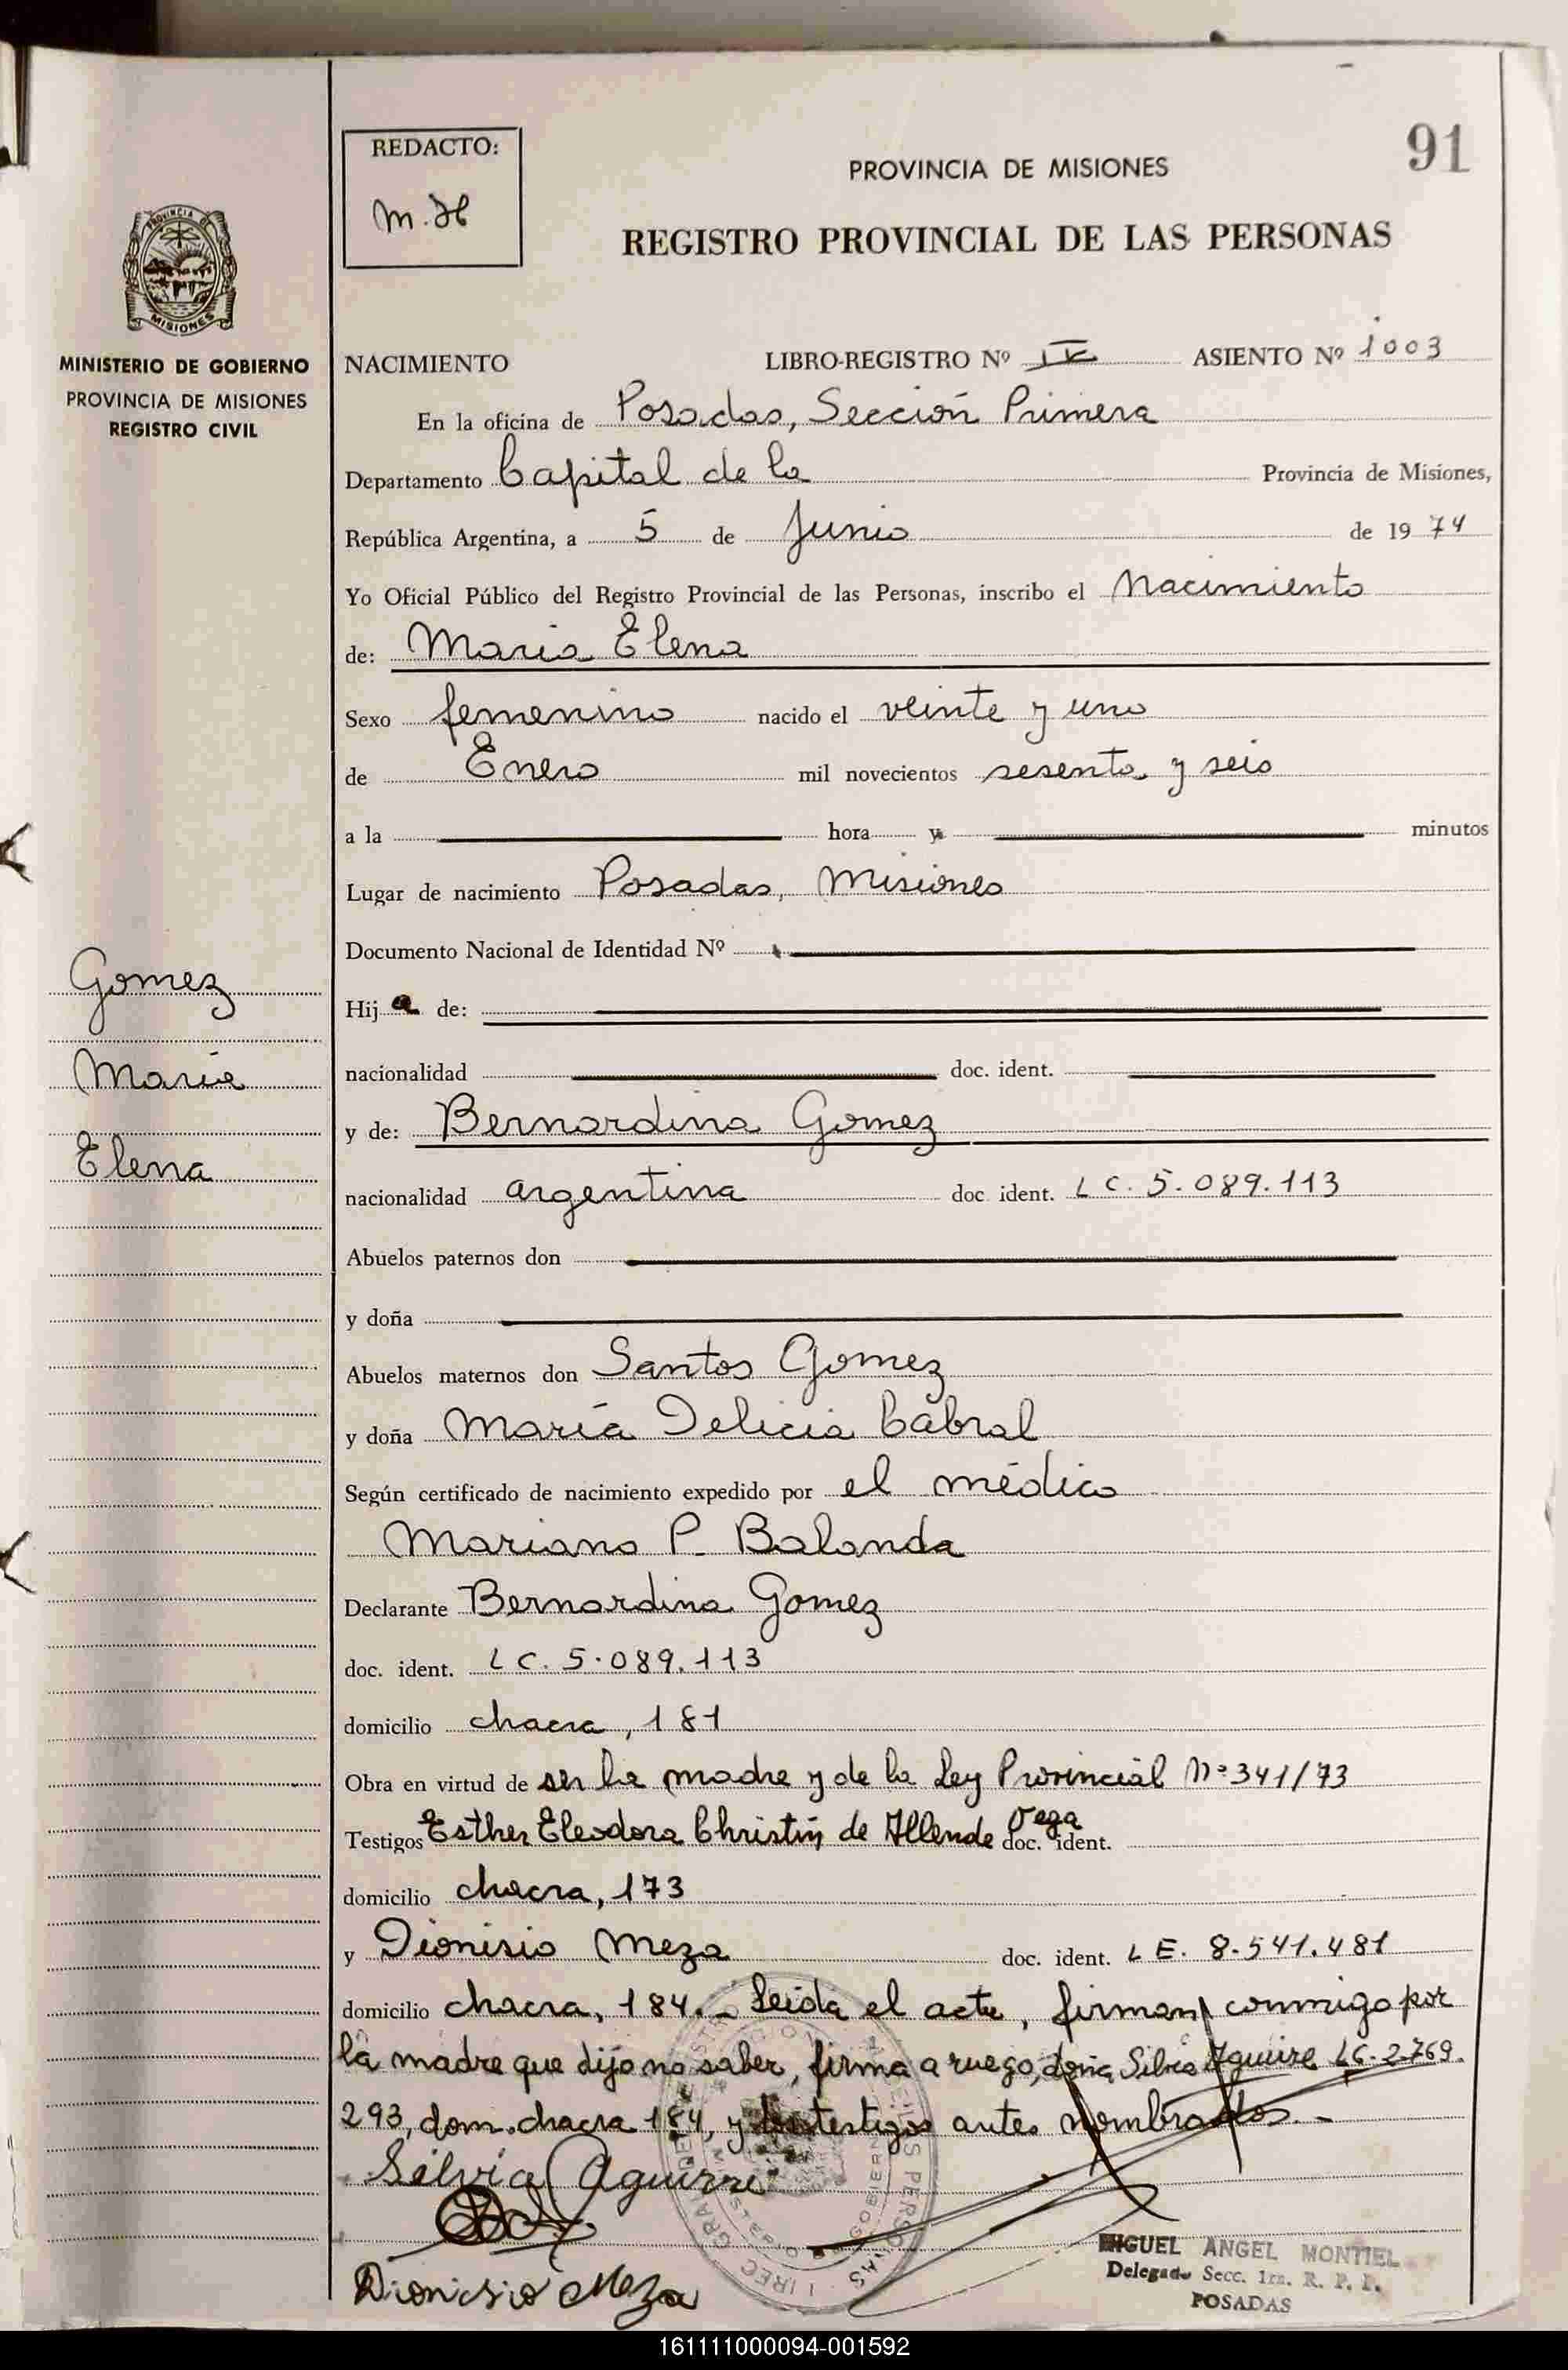 91
REDACTO:
M.H
PROVINCIA DE MISIONES
REGISTRO PROVINCIAL DE LAS PERSONAS
PROVINCIA DE
MISIONES
MINISTERIO DE GOBIERNO
PROVINCIA DE MISIONES
REGISTRO CIVIL
NACIMIENTO LIBRO-REGISTRO Nº IV ASIENTO Nº 1003
En la oficina de Posadas, Sección Primera
Departamento Capital de la Provincia de Misiones,
República Argentina, a 5 de Junio de 1974
Yo Oficial Público del Registro Provincial de las Personas, inscribo el Nacimiento
de: Maria Elena
Sexo femenino nacido el veinte y uno
de Enero mil novecientos sesenta y seis
a la hora y minutos
Lugar de nacimiento Posadas, Misiones
Documento Nacional de Identidad Nº
Hija de:
nacionalidad doc. ident.
y de: Bernardina Gomez
nacionalidad argentina doc ident. LC. 5.089.113
Abuelos paternos don
y doña
Abuelos maternos don Santos Gomez
y doña María Delicia Cabral
Según certificado de nacimiento expedido por el médico
Mariano P. Balanda
Declarante Bernardina Gomez
doc. ident. LC. 5.089.113
domicilio chacra, 181
Obra en virtud de ser la madre y de la Ley Provincial Nº 341/73
Testigos Esther Eleodora Christín de Allende Vega doc. ident.
domicilio chacra, 173
y Dionisio Meza doc. ident. LE. 8.541.481
domicilio chacra, 184._ Leida el acta, firman conmigo por
la madre que dijo no saber, firma a ruego, doña Silvia Aguirre LC. 2.769.
293, dom. chacra 184, y los testigos antes nombrados.-
Silvia Aguirre
Dionisio Meza
MIGUEL ANGEL MONTIEL
Delegado Secc. 1ra. R. P. P.
POSADAS
Gomez
María
Elena
161111000094-001592